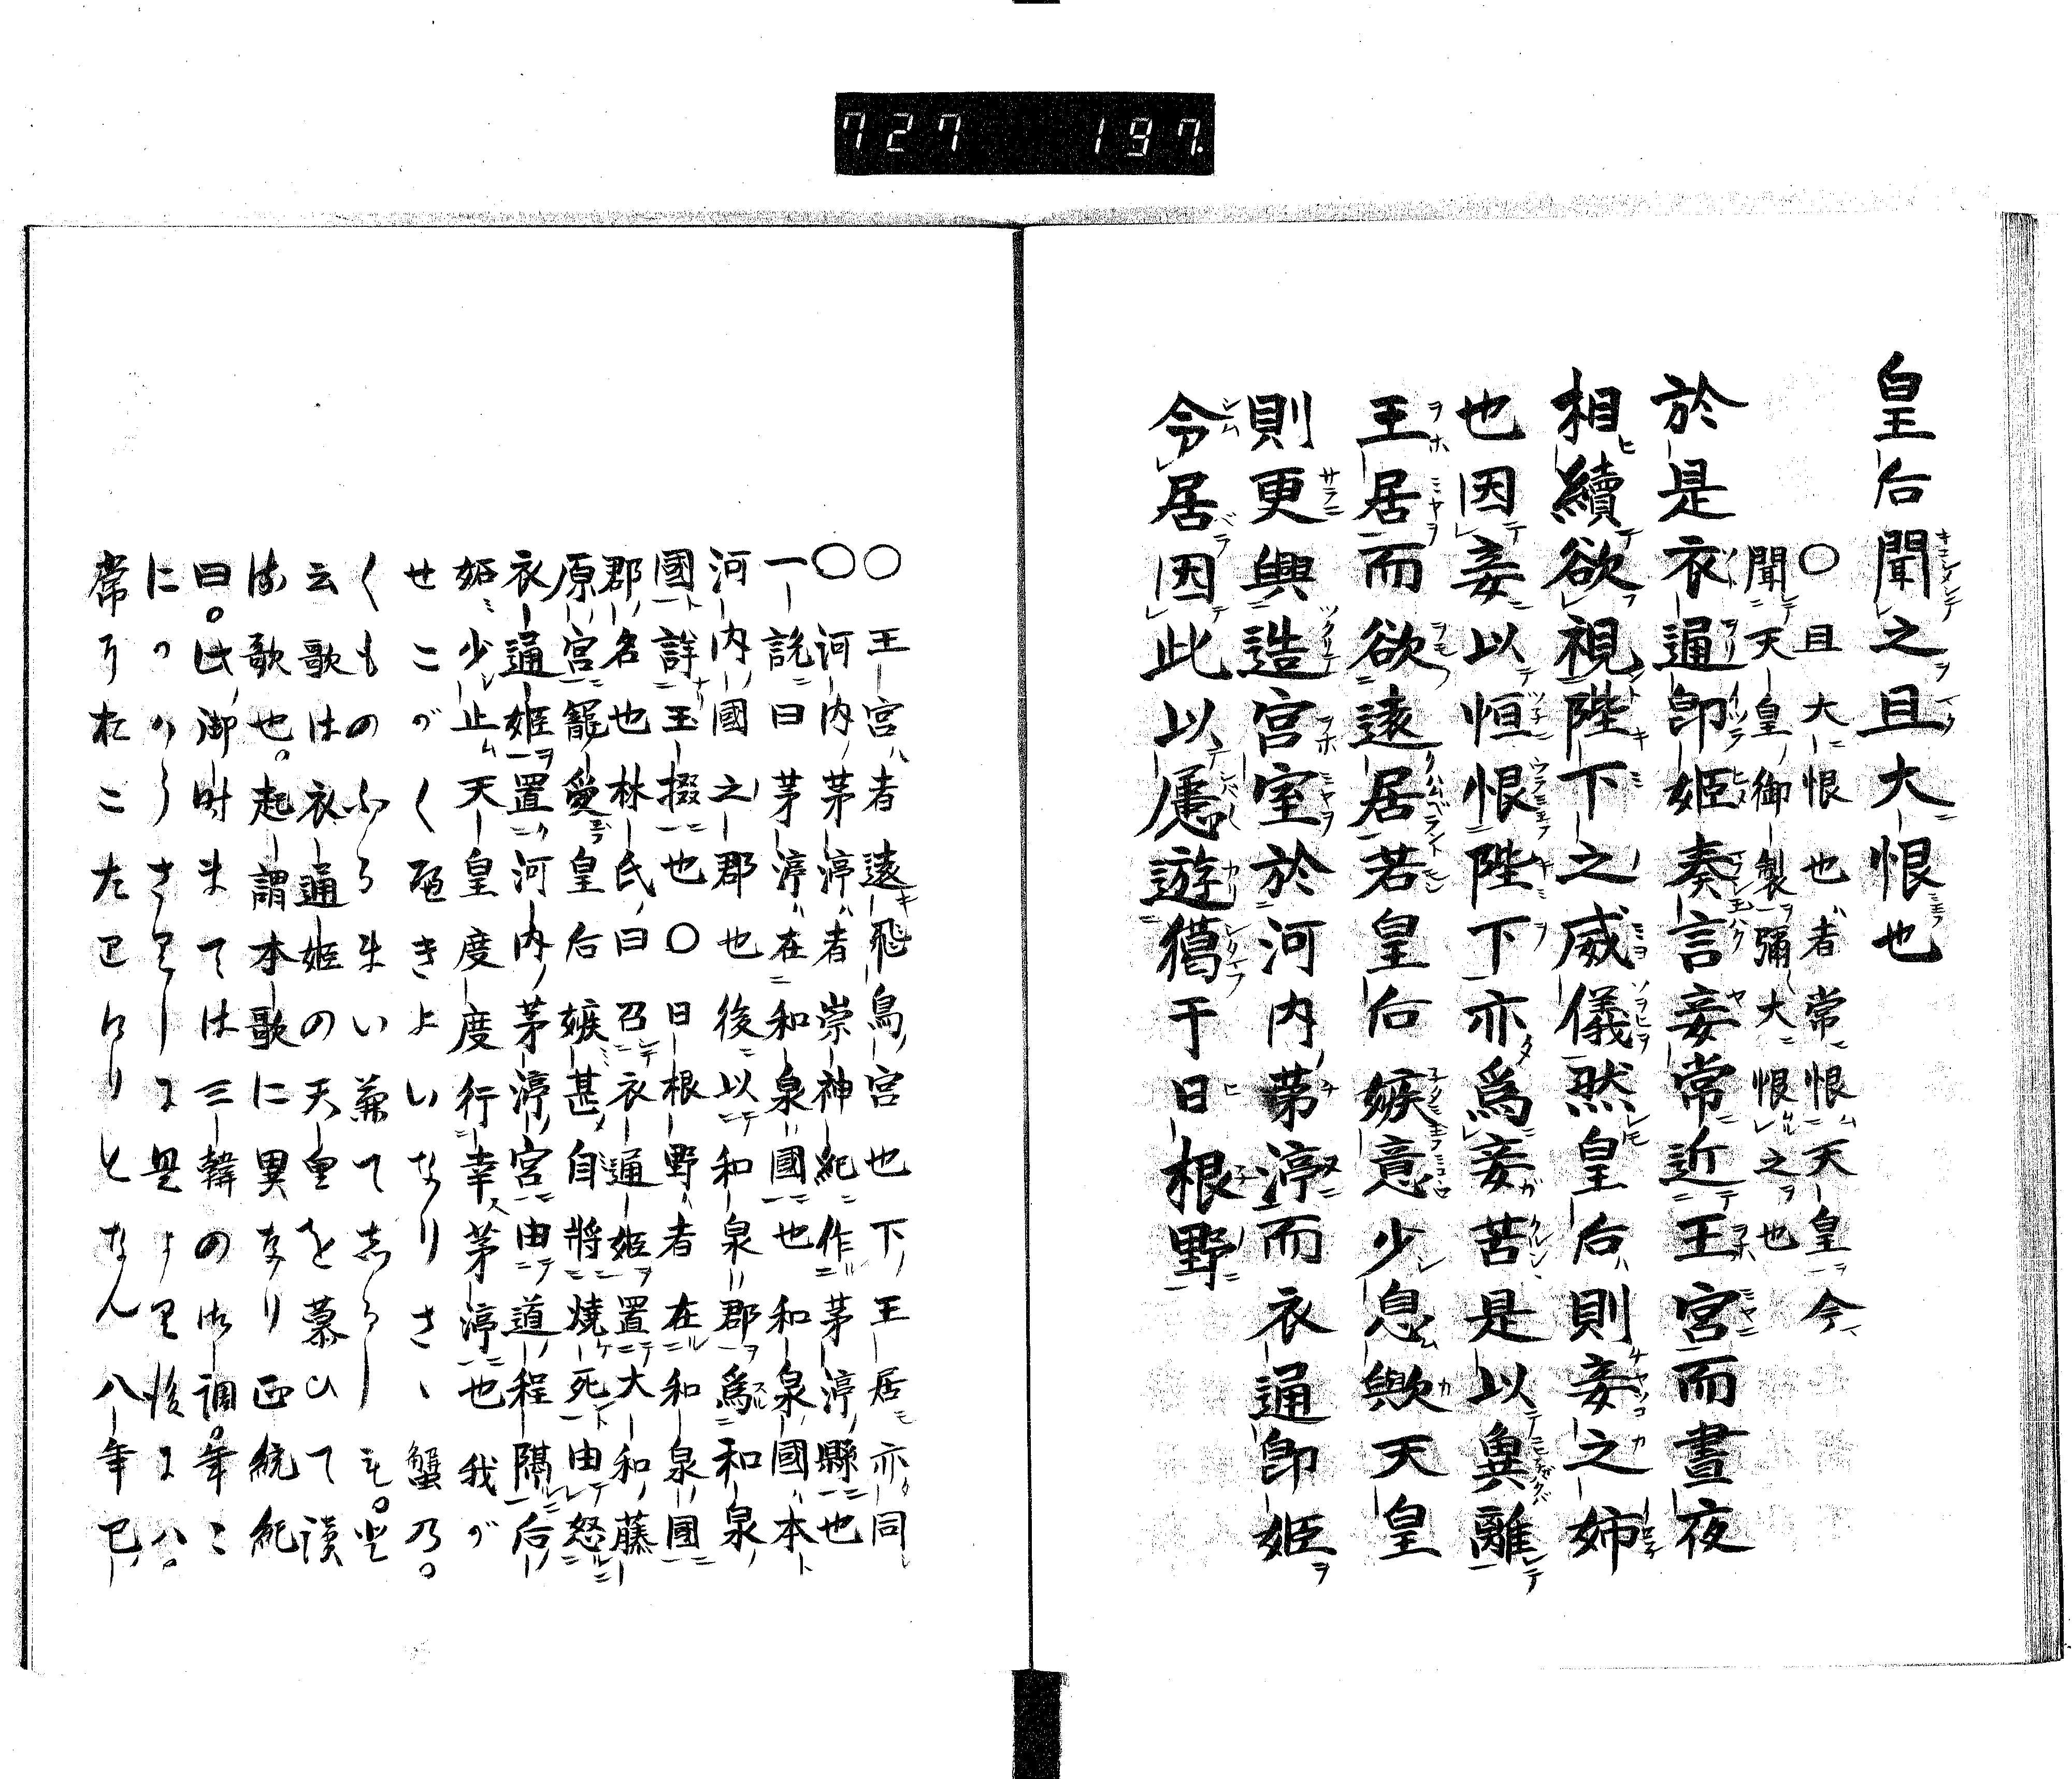 727 197.
皇后聞之且大恨也
○且大恨也者常恨天皇今
聞天皇御製彌大恨之也
於是衣通郎姫奏言妾常近王宮而晝夜
相續欲視陛下之威儀然皇后則妾之姉
也因妾以恒恨陛下亦爲妾苦是以冀離
王居而欲遠居若皇后嫉意少息歟天皇
則更興造宮室於河内茅渟而衣通郎姫
令居因此以屢遊獵于日根野
○王宮者遠飛鳥宮也下王居亦同
○河内茅渟者崇神紀作茅渟縣也
一說曰茅渟在和泉國也和泉國本
河内國之郡也後以和泉郡爲和泉
國詳玉掇也○日根野者在和泉國
郡名也林氏曰召衣通姫置大和藤
原宮寵愛皇后嫉甚自將燒死由怒
衣通姫置河内茅渟宮由道程隔后
姫少止天皇度度行幸茅渟也我が
せこがくべきよいなりさゝ蟹乃。
くものふるまい兼てしるしも。
云歌は衣通姫の天皇を慕ひて讀
歌也。起謂本歌に異なり正統紀
曰。此御時まては三韓の御調。年
につかうさりしに是より後に八。
常におこたりけりとなん八年己